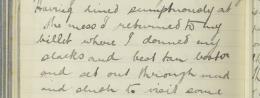 Having dined sumptuously at
the mess I returned to my
billet where I donned my
slacks and best tan boots
and set out through mud
and slush to visit some